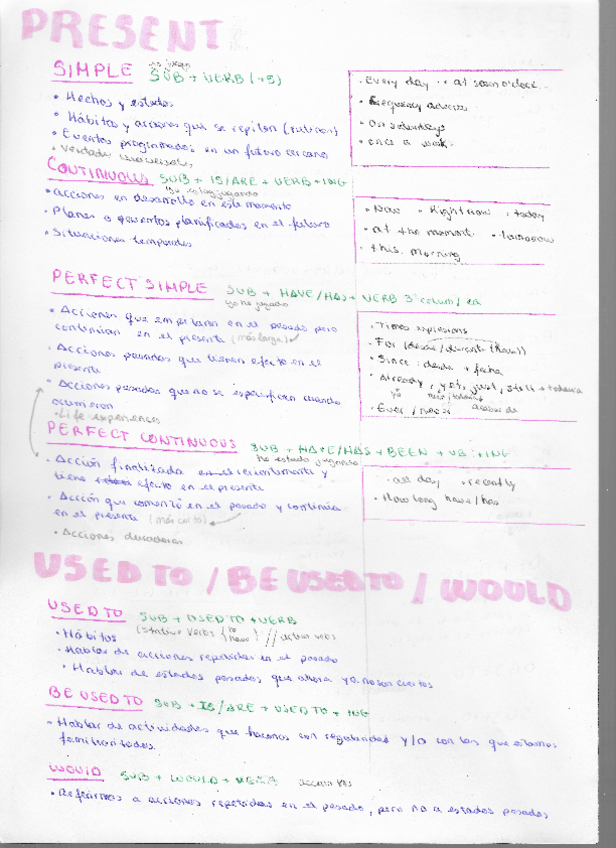 PRESENT
SIMPLE
SUB + VERB (+s)
• Hechos y estados
• Hábitos y acciones que se repiten (rutinas)
• Eventos programados en un futuro cercano
• Verdades universales
• Every day • at seven o'clock...
• Frequency adverbs
• On saturdays
• once a week
CONTINUOUS SUB + IS/ARE + VERB + ING
Yo estoy jugando
• acciones en desarrollo en este momento
• Planes o eventos planificados en el futuro
• Situaciones temporales
• Now • Right now • today
• at the moment • tomorrow
• this morning
PERFECT SIMPLE SUB + HAVE/HAS + VERB 3ª colum/ed
yo he jugado
• Acciones que empiezan en el pasado pero
continúan en el presente (más larga)
• Acciones pasadas que tienen efecto en el
presente
• Acciones pasadas que no se especifican cuando
ocurrieron
• Life experiences
• Times expresions
• For (desde / durante (have))
• Since: desde + fecha
• Already, yet, just, still + todavía
ya
acabar de
• Ever / never
PERFECT CONTINUOUS SUB + HAVE/HAS + BEEN + VB + ING
He estado jugando
• Acción finalizada recientemente y
tiene efecto en el presente
• Acción que comenzó en el pasado y continúa
en el presente (más corto)
• Acciones duraderas
• all day • recently
• How long have/has
USED TO / BE USED TO / WOULD
USED TO SUB + USED TO + VERB
(Stative verbs
• Hábitos
• Hablar de acciones repetidas en el pasado
• Hablar de estados pasados que ahora ya no son ciertos
BE USED TO SUB + IS/ARE + USED TO + ING
• Hablar de actividades que hacemos con regularidad y/o con las que estamos
familiarizados.
WOULD SUB + WOULD + VERB
• Referirnos a acciones repetidas en el pasado, pero no a estados pasados